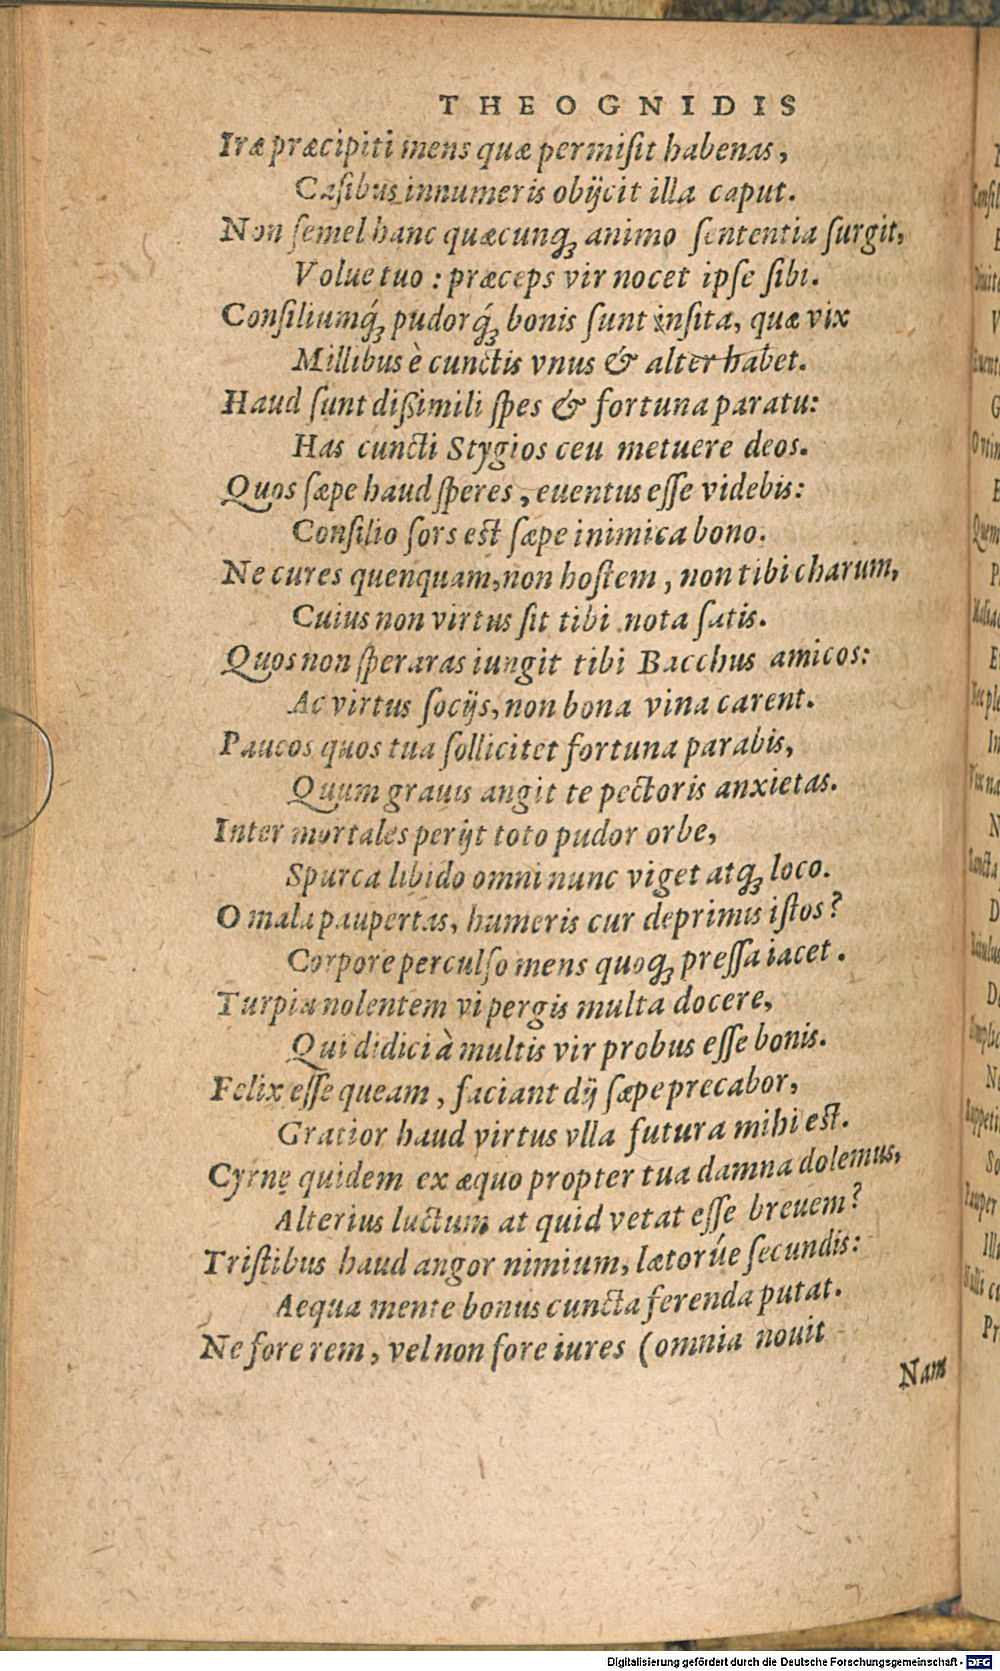 THEOGNIDIS
Iræ præcipiti mens quæ permiſit habenas,
Caſibus innumeris obijcit illa caput.
Non ſemel hanc quæcunq; animo ſententia ſurgit,
Volue tuo : præceps vir nocet ipſe ſibi.
Conſiliumq́; pudorq́; bonis ſunt inſita, quæ vix
Millibus è cunctis vnus & alter habet.
Haud ſunt dißimili ſpes & fortuna paratu:
Has cuncti Stygios ceu metuere deos.
Quos ſæpe haud ſperes, euentus eſſe videbis:
Conſilio ſors est ſæpe inimica bono.
Ne cures quenquam, non hoſtem, non tibi charum,
Cuius non virtus ſit tibi nota ſatis.
Quos non ſperaras iungit tibi Bacchus amicos:
Ac virtus ſocijs, non bona vina carent.
Paucos quos tua ſollicitet fortuna parabis,
Quum grauis angit te pectoris anxietas.
Inter mortales perijt toto pudor orbe,
Spurca libido omni nunc viget atq; loco.
O mala paupertas, humeris cur deprimis iſtos?
Corpore perculſo mens quoq; preſſa iacet.
Turpia nolentem vi pergis multa docere,
Qui didici à multis vir probus eſſe bonis.
Felix eſſe queam, faciant dij ſæpe precabor,
Gratior haud virtus vlla futura mihi est.
Cyrnę quidem ex æquo propter tua damna dolemus,
Alterius luctum at quid vetat eſſe breuem?
Triſtibus haud angor nimium, lætorúe ſecundis:
Aequa mente bonus cuncta ferenda putat.
Ne fore rem, vel non fore iures (omnia nouit
Nam
Digitalisierung gefördert durch die Deutsche Forschungsgemeinschaft - DFG